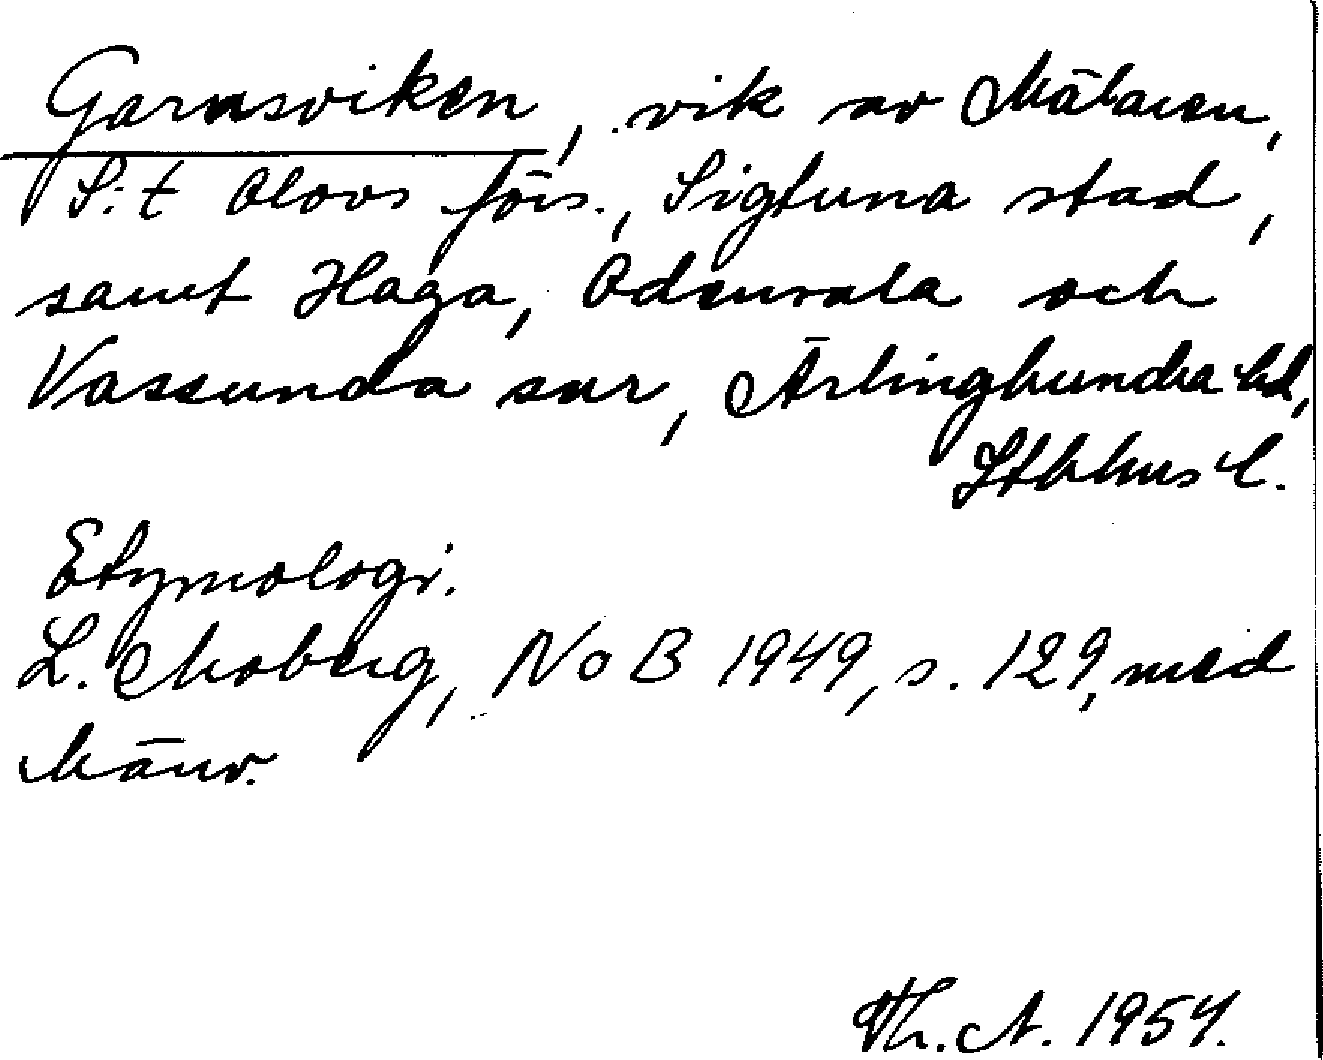 Garnsviken, vik av Mälaren,
S:t Olovs förs., Sigtuna stad,
samt Haga, Odensala och
Vassunda snr, Ärlinghundra hd,
Sthlms l.
Etymologi.
L. Moberg, NoB 1949, s. 129, med
hänv.
Th. A. 1954.